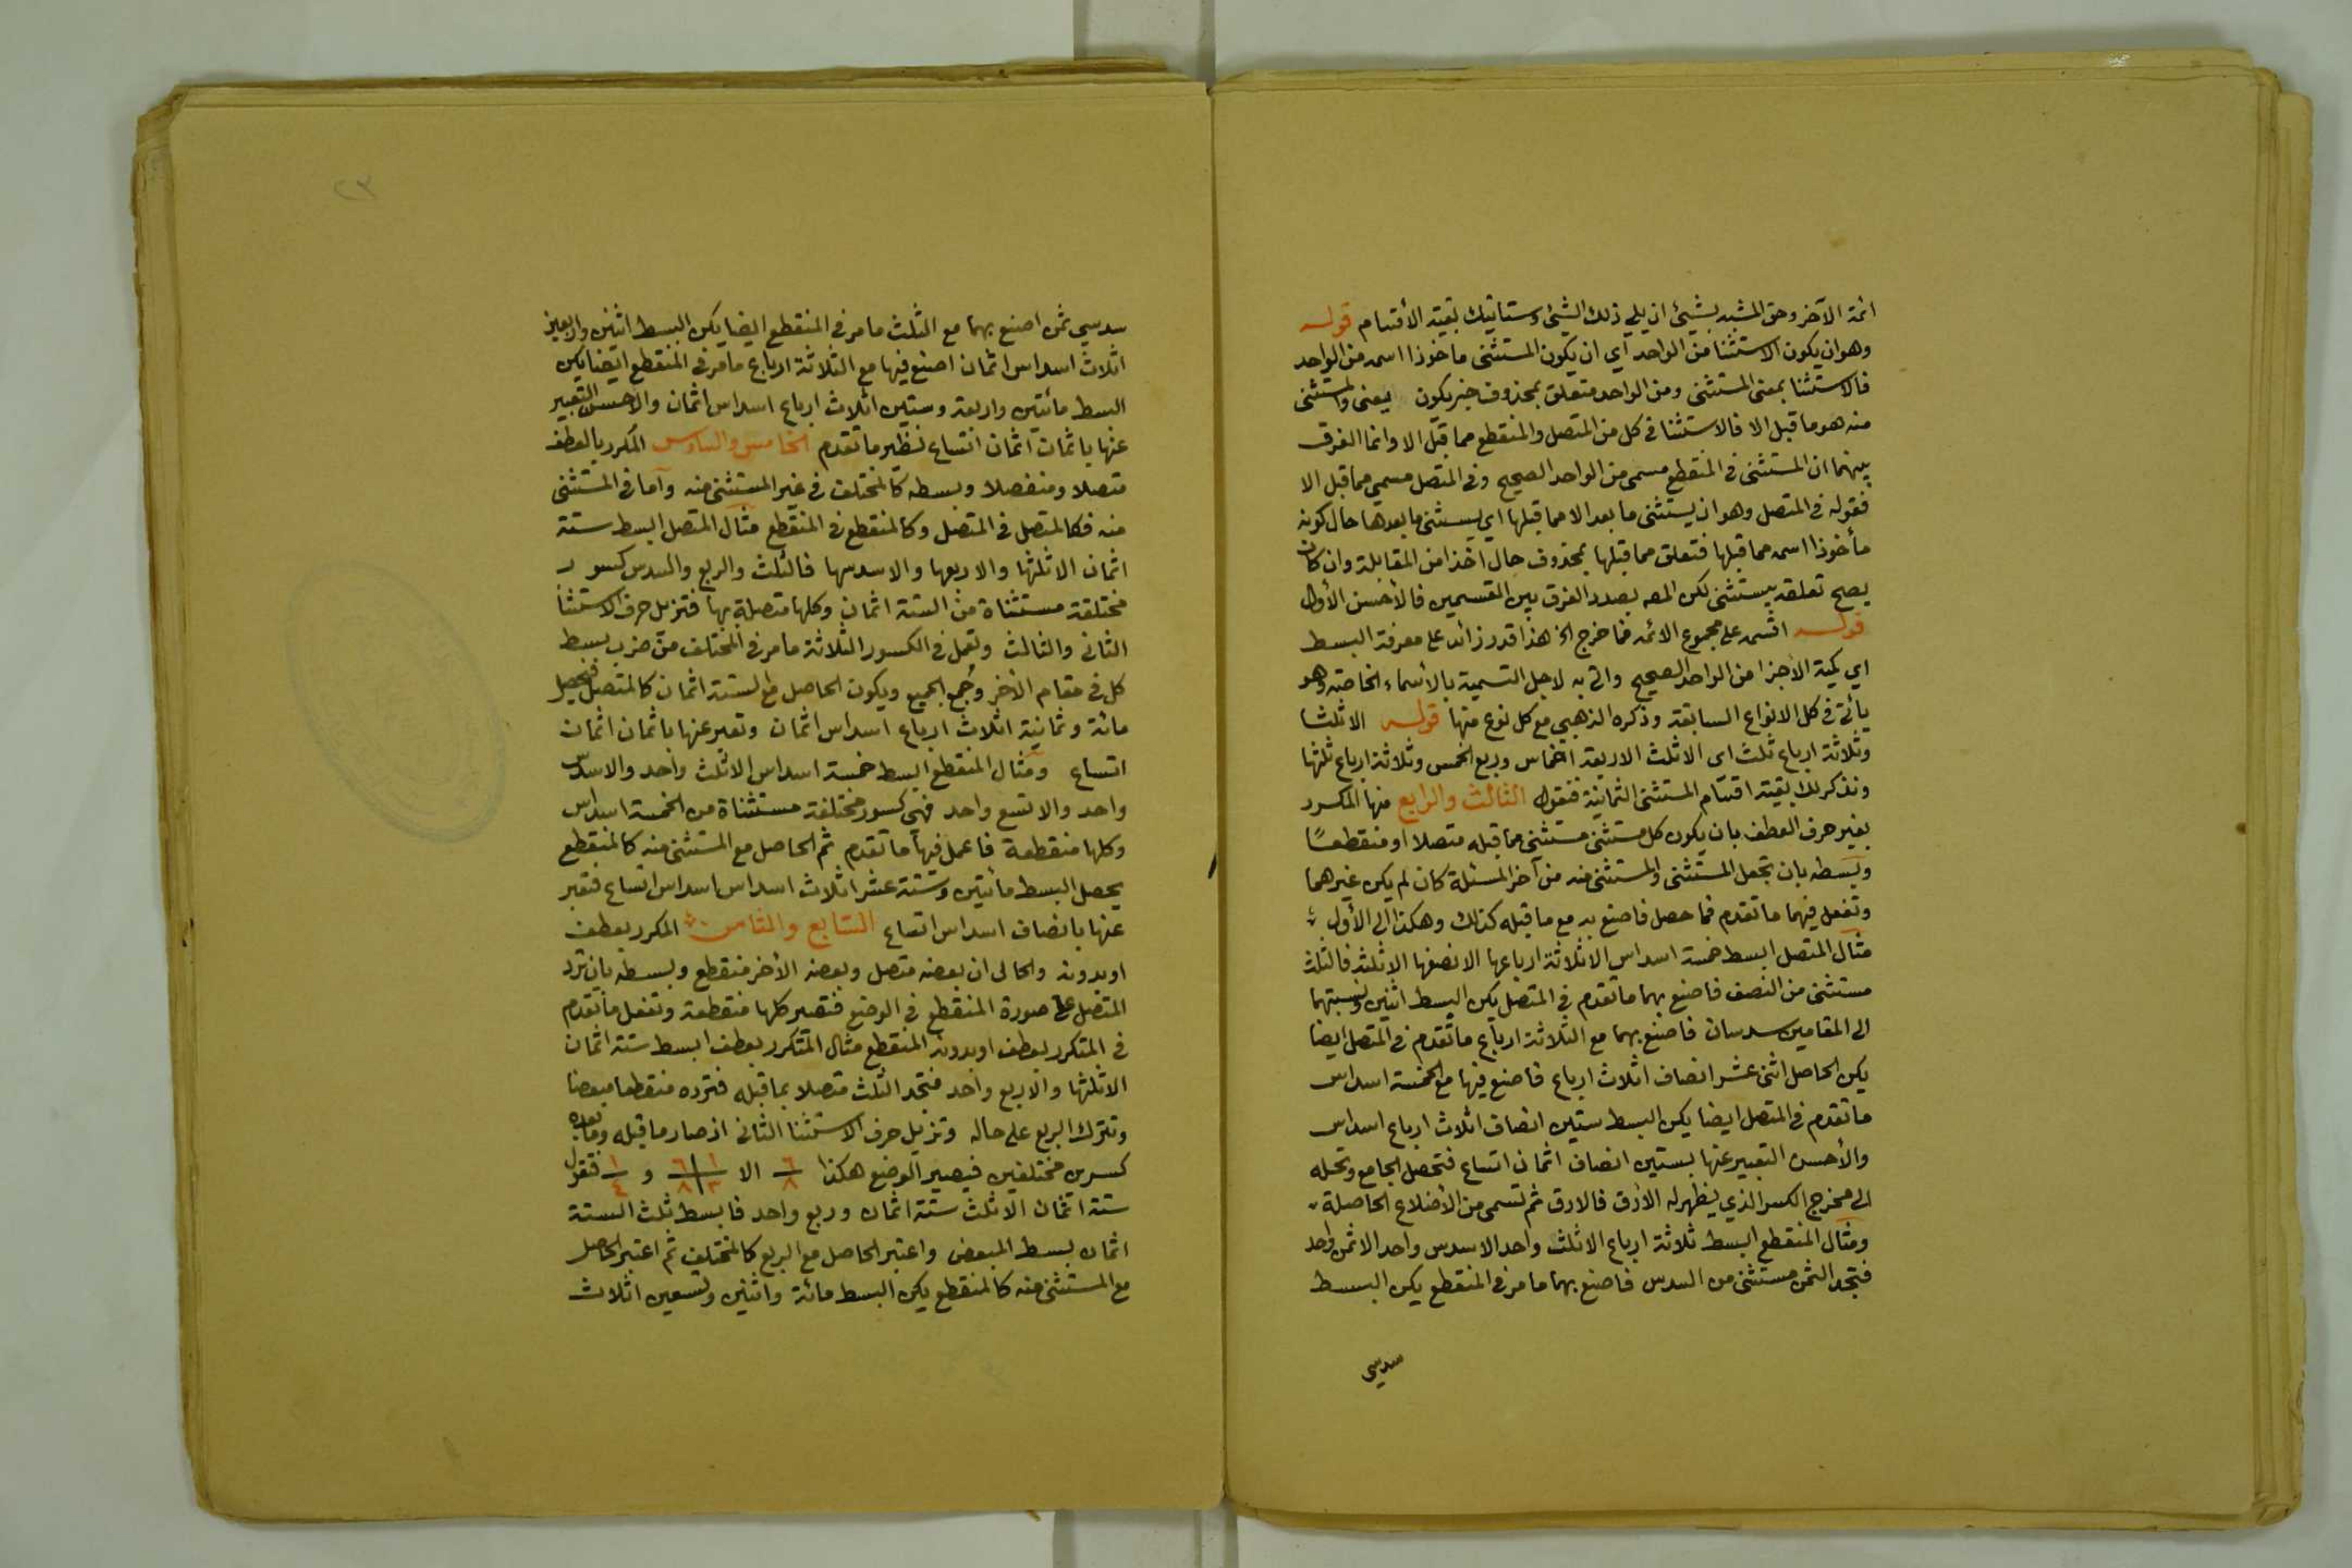 ائمة الآخر وحق المشبه بشيئ ان يلي ذلك الشيئ وستاتيك بقية الأقسام قوله
وهو ان يكون الاستثنا من الواحد أي ان يكون المستثنى ماخوذا اسمه من الواحد
فالاستثنا بمعنى المستثنى ومن الواحد متعلق بمحذوف خبر يكون يعنى والمستثنى
منه هو ما قبل الا فالاستثنا في كل من المتصل والمنقطع مما قبل الا وانما الفرق
بينهما ان المستثنى في المنقطع مسمى من الواحد الصحيح وفي المتصل مسمي مما قبل الا
فقوله في المتصل وهو ان يستثنى ما بعد الا مما قبلها اي يستثنى ما بعدها حال كونه
مأخوذا اسمه مما قبلها فتعلق مما قبلها بمحذوف حال اخذا من المقابلة وان كان
يصح تعلقه بيستثنى لكن المصه بصدد الفرق بين القسمين فالأحسن الأول
قوله اقسمه على مجموع الائمه فما خرج الخ هذا قدر زائد على معرفة البسط
اي كمية الأجزا من الواحد الصحيح واتى به لاجل التسمية بالأسماء الخاصة وهو
يأتي في كل الانواع السابقة وذكره الذهبي مع كل نوع منها قوله الا ثلثا
وثلاثة ارباع ثلث اى الا ثلث الاربعة اخماس وربع الخمس وثلاثة ارباع ثلثها
ونذكر لك بقية اقسام المستثنى الثمانية فنقول الثالث والرابع منها المكرر
بغير حرف العطف بان يكون كل مستثنى مستثنى مما قبله متصلا او منقطعًا
وبسطه بان تجعل المستثنى والمستثنى منه من آخر المسئلة كان لم يكن غيرهما
وتفعل فيهما ما تقدم فما حصل فاصنع به مع ما قبله كذلك وهكذا الى الأول
مثال المتصل ابسط خمسة اسداس الا ثلاثة ارباعها الا نصفها الا ثلثه فالثلث
مستثنى من النصف فاصنع بهما ما تقدم في المتصل يكن البسط اثنين ونسبتهما
الى المقامين سدسان فاصنع بهما مع الثلاثة ارباع ما تقدم في المتصل ايضا
يكن الحاصل اثنى عشر انصاف اثلاث ارباع فاصنع فيها مع الخمسة اسداس
ما تقدم في المتصل ايضا يكن البسط ستين انصاف اثلاث ارباع اسداس
والأحسن التعبير عنها بستين انصاف اثمان اتساع فتحصل الجامع وتحله
الى مخرج الكسر الذي يظهر له الأرق فالارق ثم تسمى من الأضلاع الحاصلة
ومثال المنقطع ابسط ثلاثة ارباع الا ثلث واحد الا سدس واحد الا ثمن واحد
فتجد الثمن مستثنى من السدس فاصنع بهما ما مر في المنقطع يكن البسط
سدسي
٢٣
سدسي ثمن اصنع بهما مع الثلث ما مر في المنقطع ايضا يكن البسط اثنين واربعين
اثلاث اسداس اثمان اصنع فيها مع الثلاثة ارباع ما مر في المنقطع ايضا يكن
البسط مائتين واربعة وستين اثلاث ارباع اسداس اثمان والاحسن التعبير
عنها باثمان اثمان اتساع نظير ما تقدم الخامس والسادس المكرر بالعطف
متصلا ومنفصلا وبسطه كالمختلف في غير المستثنى منه وأما في المستثنى
منه فكالمتصل في المتصل وكالمنقطع في المنقطع مثال المتصل ابسط ستة
اثمان الا ثلثها والا ربعها والا سدسها فالثلث والربع والسدس كسور
مختلفة مستثناة من الستة اثمان وكلها متصلة بها فتزيل حرف الاستثنا
الثانى والثالث وتعمل في الكسور الثلاثة ما مر في المختلف من ضرب بسط
كل في مقام الآخر وجُمع الجميع ويكون الحاصل مع الستة اثمان كالمتصل فيحصل
مائة وثمانية اثلاث ارباع اسداس اثمان وتعبر عنها باثمان اثمان
اتساع ومثال المنقطع ابسط خمسة اسداس الا ثلث واحد والا سدس
واحد والا تسع واحد فهي كسور مختلفة مستثناة من الخمسة اسداس
وكلها منقطعة فاعمل فيها ما تقدم ثم الحاصل مع المستثنى منه كالمنقطع
يحصل البسط مائتين وستة عشر اثلاث اسداس اسداس اتساع فتعبر
عنها بانصاف اسداس اتساع السابع والثامن المكرر بعطف
او بدونه والحال ان بعضه متصل وبعضه الآخر منقطع وبسطه بان ترد
المتصل على صورة المنقطع في الوضع فتصير كلها منقطعة وتفعل ما تقدم
في المتكرر بعطف او بدونه المنقطع مثال المتكرر بعطف ابسط ستة اثمان
الا ثلثها والا ربع واحد فتجد الثلث متصلا بما قبله فترده منقطعا مبعضا
وتترك الربع على حاله وتزيل حرف الاستثنا الثانى اذ صار ما قبله وما بعده
كسرين مختلفين فيصير الوضع هكذا ٦/٨ الا ١/٣ | ٦/٨ و ١/٤ فتقول
ستة اثمان الا ثلث ستة اثمان وربع واحد فابسط ثلث الستة
اثمان بسط المبعض واعتبر الحاصل مع الربع كالمختلف ثم اعتبر الحاصل
مع المستثنى منه كالمنقطع يكن البسط مائة واثنين وتسعين اثلاث